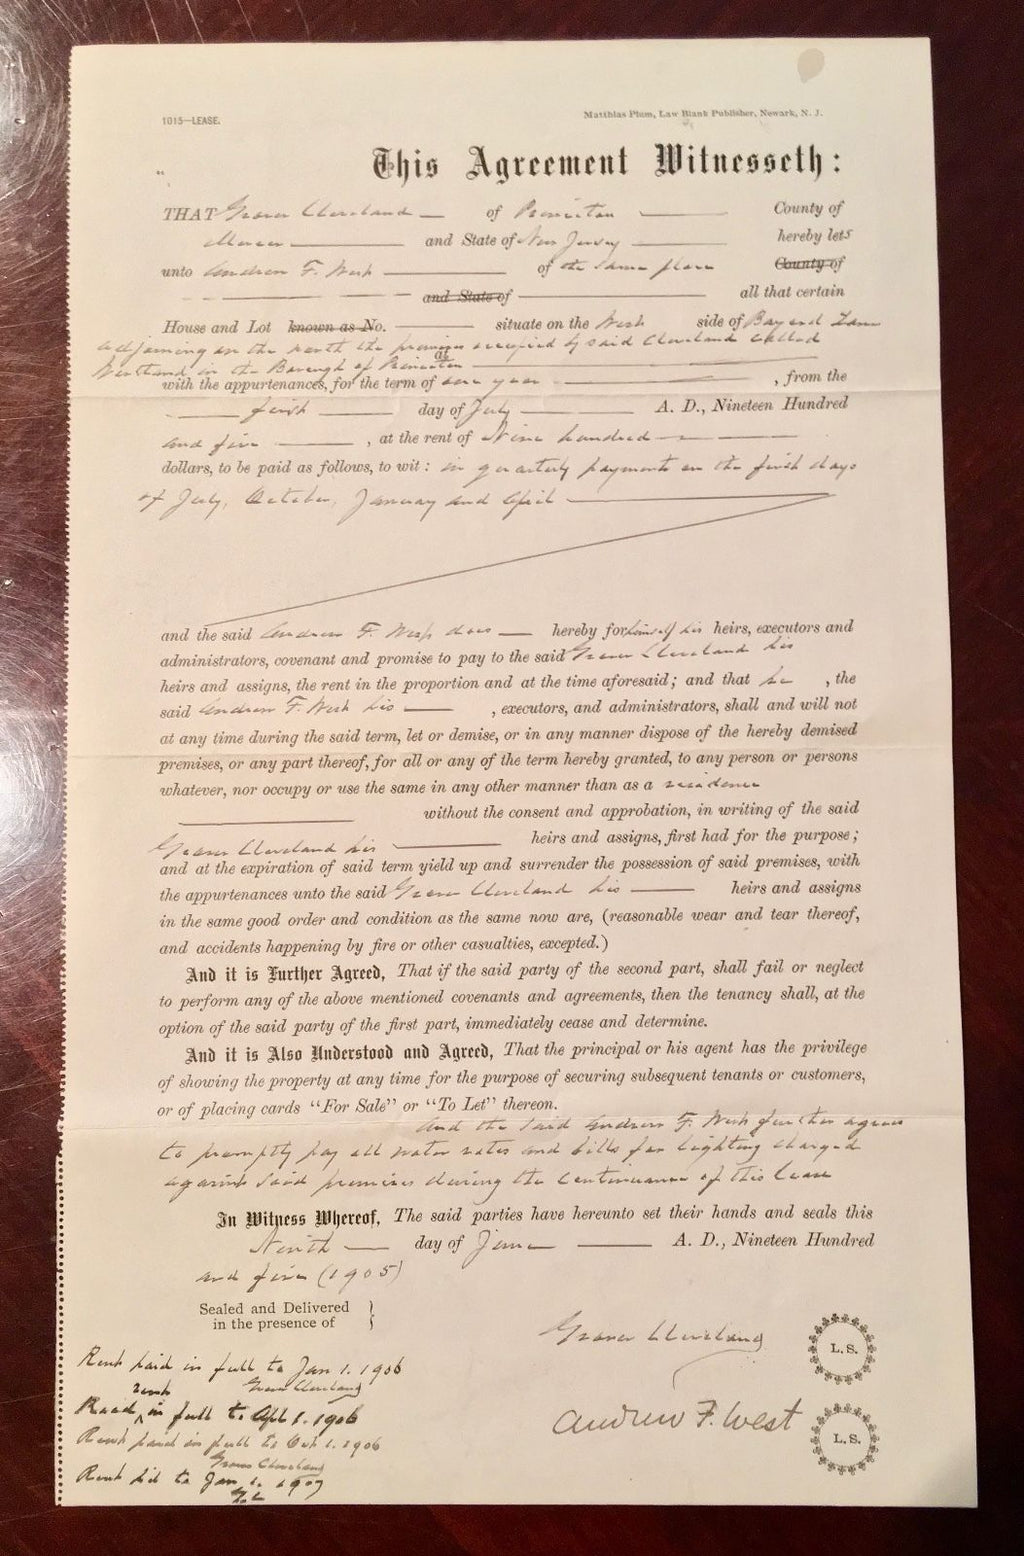 1015—LEASE.
Matthias Plum, Law Blank Publisher, Newark, N. J.
This Agreement Witnesseth:
THAT Grover Cleveland of Princeton County of
Mercer and State of New Jersey hereby lets
unto Andrew F. West of the same place County of
and State of all that certain
House and Lot known as No. situate on the West side of Bayard Lane
adjoining on the north the premises occupied by said Cleveland called
Westland in the Borough of Princeton
with the appurtenances, for the term of one year, from the
first day of July A. D., Nineteen Hundred
and five, at the rent of Nine hundred
dollars, to be paid as follows, to wit: in quarterly payments on the first days
of July, October, January and April
and the said Andrew F. West does hereby for himself his heirs, executors and
administrators, covenant and promise to pay to the said Grover Cleveland his
heirs and assigns, the rent in the proportion and at the time aforesaid; and that he, the
said Andrew F. West his, executors, and administrators, shall and will not
at any time during the said term, let or demise, or in any manner dispose of the hereby demised
premises, or any part thereof, for all or any of the term hereby granted, to any person or persons
whatever, nor occupy or use the same in any other manner than as a residence
without the consent and approbation, in writing of the said
Grover Cleveland his heirs and assigns, first had for the purpose;
and at the expiration of said term yield up and surrender the possession of said premises, with
the appurtenances unto the said Grover Cleveland his heirs and assigns
in the same good order and condition as the same now are, (reasonable wear and tear thereof,
and accidents happening by fire or other casualties, excepted.)
And it is Further Agreed, That if the said party of the second part, shall fail or neglect
to perform any of the above mentioned covenants and agreements, then the tenancy shall, at the
option of the said party of the first part, immediately cease and determine.
And it is Also Understood and Agreed, That the principal or his agent has the privilege
of showing the property at any time for the purpose of securing subsequent tenants or customers,
or of placing cards "For Sale" or "To Let" thereon.
And the said Andrew F. West further agrees
to promptly pay all water rates and bills for lighting charged
against said premises during the continuance of this lease
In Witness Whereof, The said parties have hereunto set their hands and seals this
Ninth day of June A. D., Nineteen Hundred
and five (1905)
Sealed and Delivered
in the presence of
Grover Cleveland
L. S.
Andrew F. West
L. S.
Rent paid in full to Jan 1. 1906
Grover Cleveland
rent
in full to Apl 1. 1906
Rent paid in full to Oct 1. 1906
Grover Cleveland
Rent to Jan 1. 1907
G. C